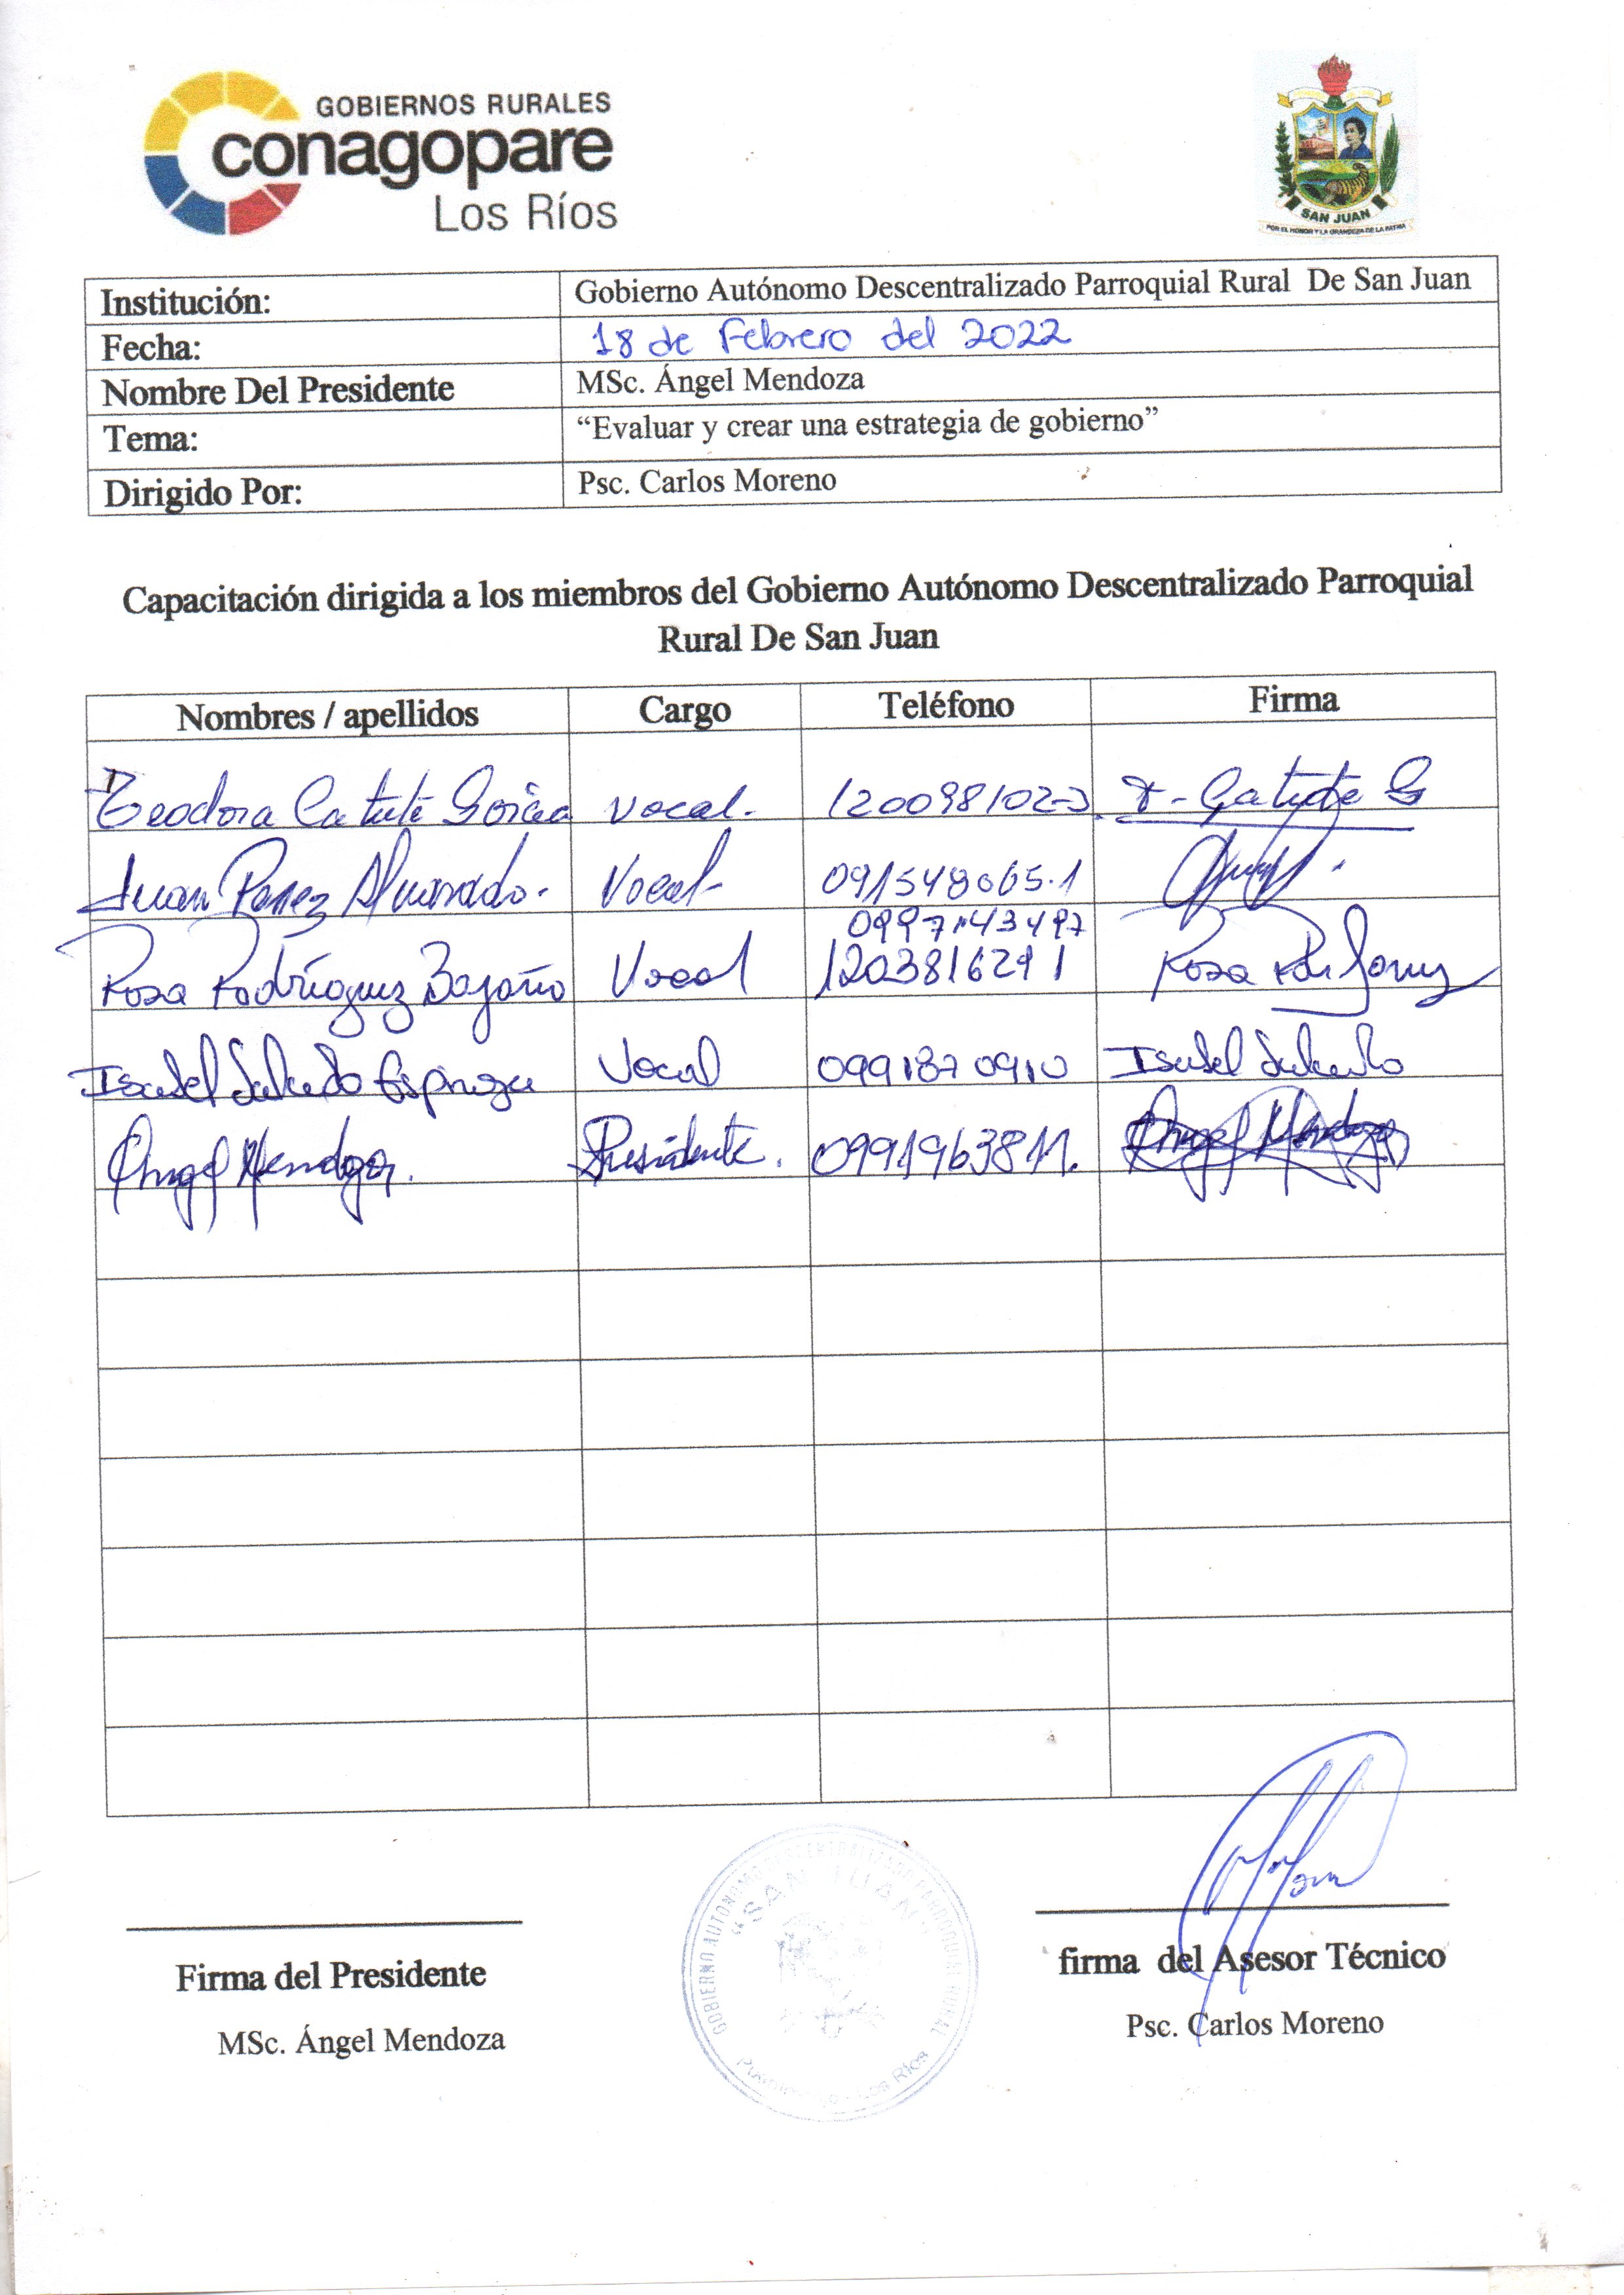 GOBIERNOS RURALES
conagopare
Los Ríos
SAN JUAN
POR EL HONOR Y LA GRANDEZA DE LA PATRIA
Institución: Gobierno Autónomo Descentralizado Parroquial Rural De San Juan
Fecha: 18 de Febrero del 2022
Nombre Del Presidente MSc. Ángel Mendoza
Tema: “Evaluar y crear una estrategia de gobierno”
Dirigido Por: Psc. Carlos Moreno
Capacitación dirigida a los miembros del Gobierno Autónomo Descentralizado Parroquial
Rural De San Juan
Nombres / apellidos Cargo Teléfono Firma
Teodora Vocal.
Juan Alvarado. Vocal 091548065-1
Rosa Rodríguez Vocal 1203816291 Rosa
Isabel Salcedo Espinoza Vocal 0991870910 Isabel Salcedo
Ángel Mendoza. Presidente. 0991963811. Ángel Mendoza
GOBIERNO AUTONOMO DESCENTRALIZADO PARROQUIAL RURAL
"SAN JUAN"
Los Ríos
Firma del Presidente firma del Asesor Técnico
MSc. Ángel Mendoza Psc. Carlos Moreno